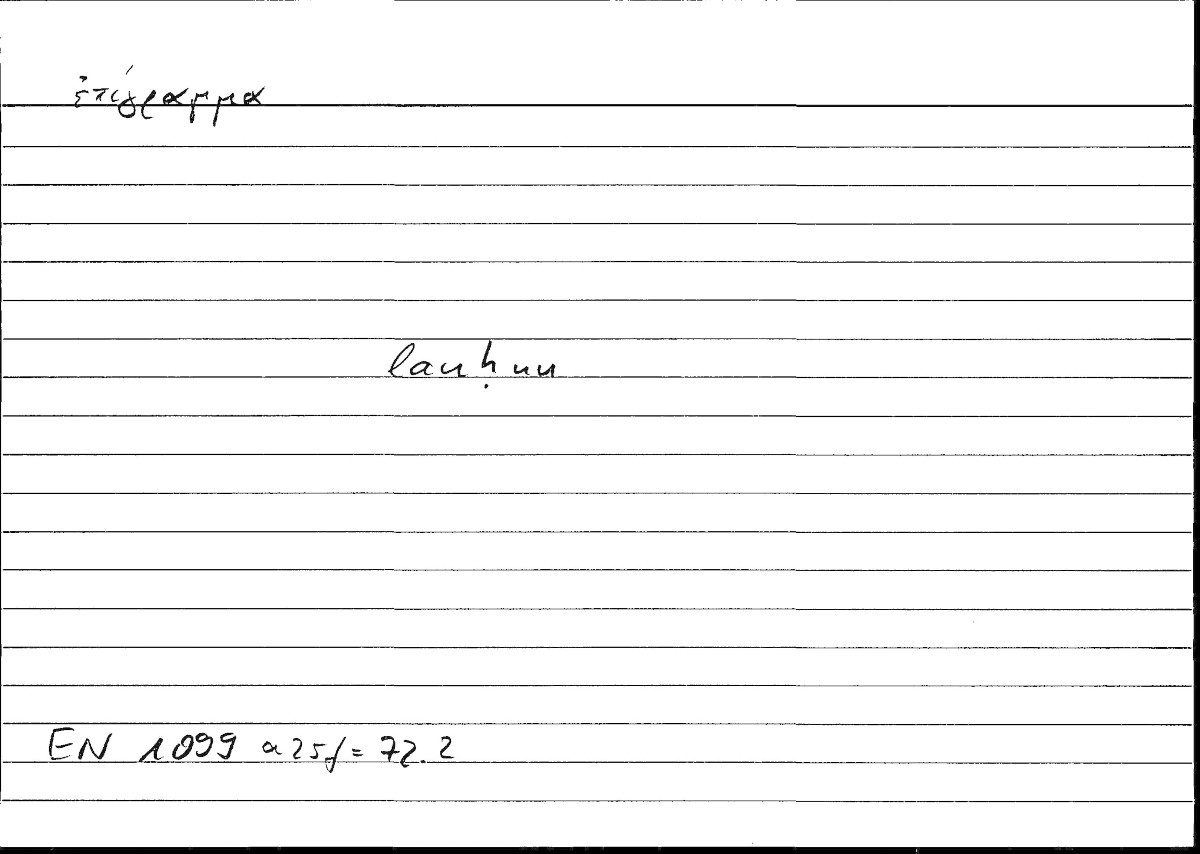 ἐπίγραμμα
lauḥun
EN 1099 a 25f = 72.2